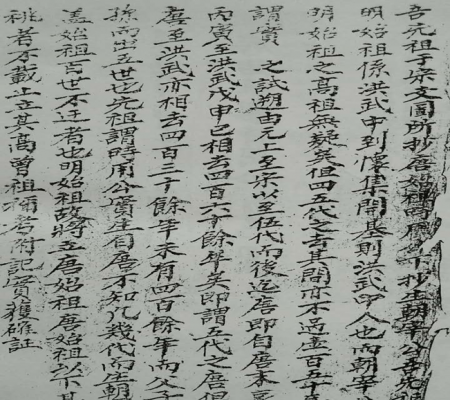 吾先祖于宗文圖所抄唐始祖
明始祖係洪武中到懷集開基則洪武中人也而朝宰
明始祖之高祖無疑矣但四五代之者其間亦不過壹百五十
謂實 之試遡由元上至宋以至五代而後迄唐即自唐末
丙寅至洪武戊申已相去四百六十餘年矣即謂五代之唐但
唐至洪武亦相去四百三十餘年未有四百餘年而父子
孫而出五世也先祖謂時用公實生自唐不知凡幾代而生朝
蓋始祖百世不迁者也明始祖故將立唐始祖唐始祖以下其
祧者不載止立其高曾祖祢考附記實獲確証